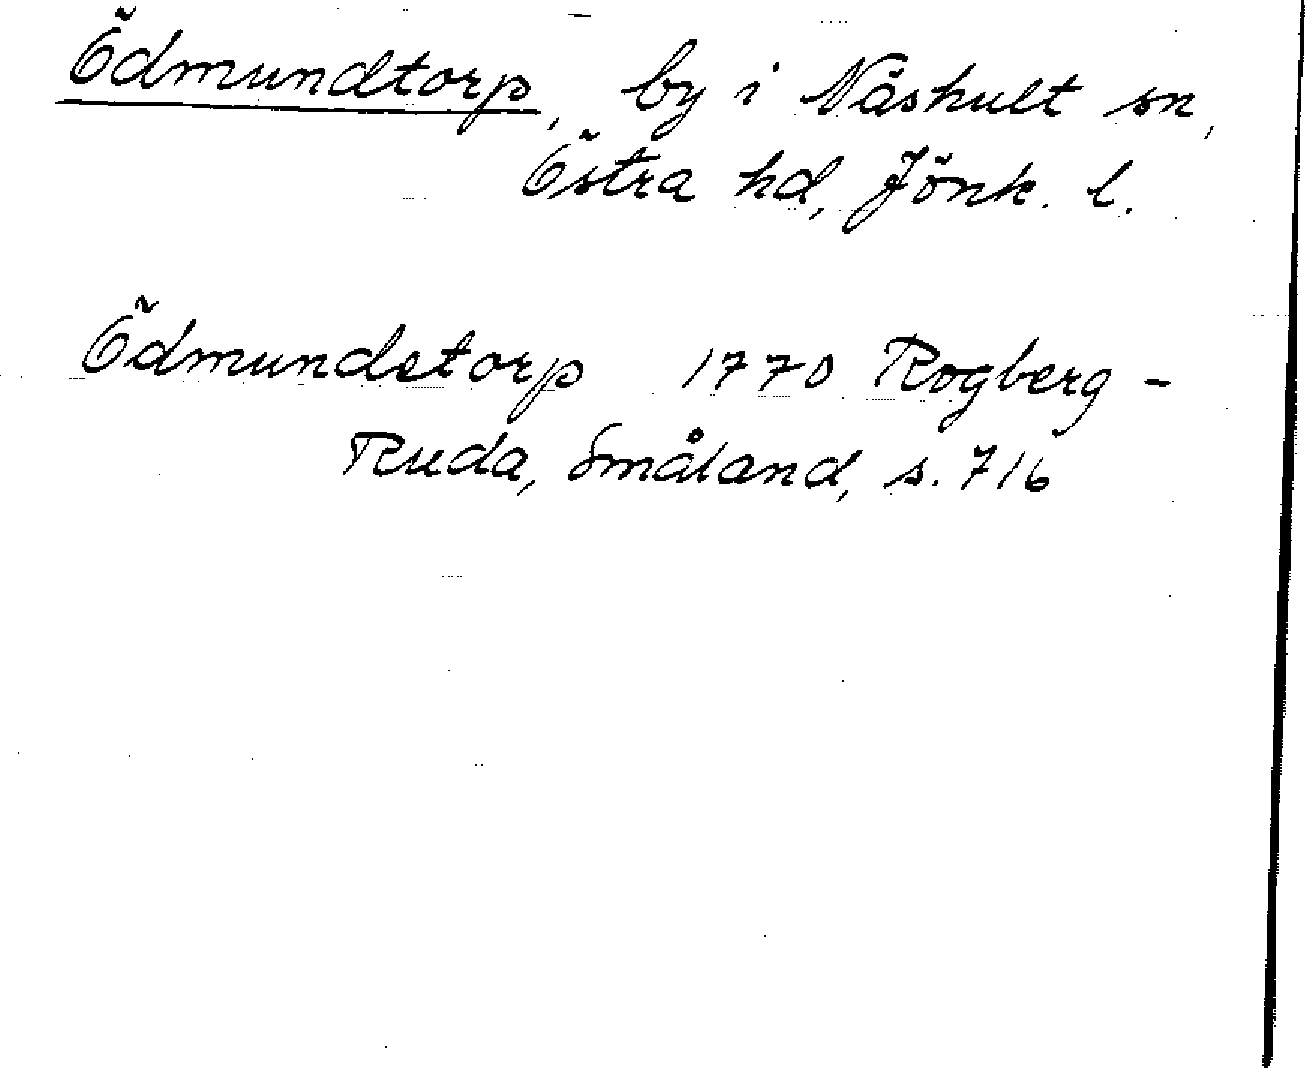 Ödmundtorp, by i Näshult sn,
Östra hd, Jönk. l.
Ödmundstorp 1770 Rogberg-
Ruda, Småland, s. 716